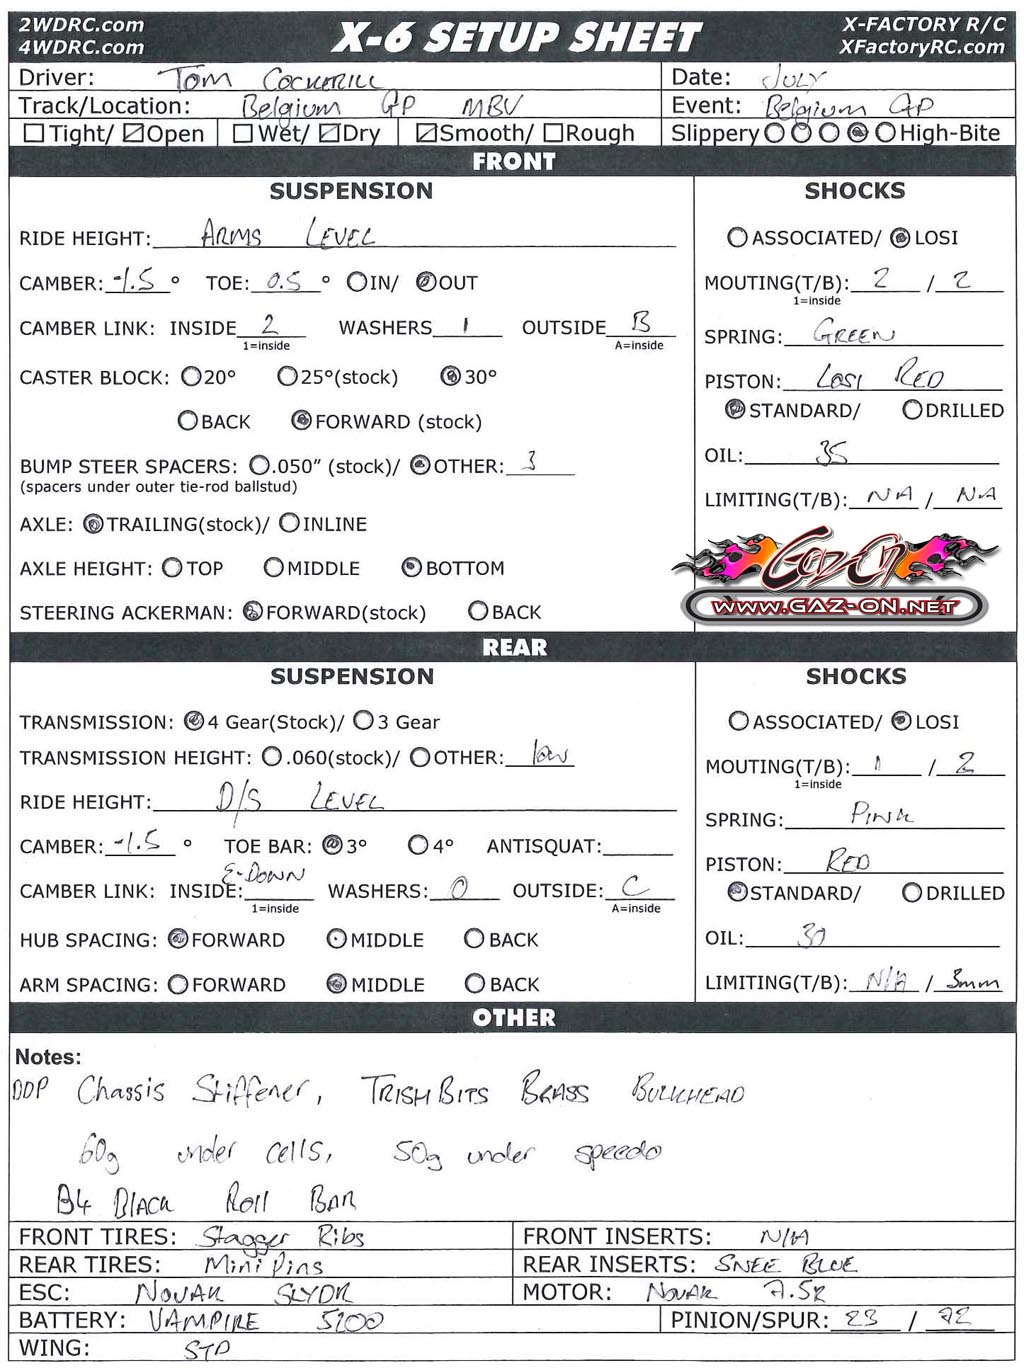 2WDRC.com
4WDRC.com
X-6 SETUP SHEET
X-FACTORY R/C
XFactoryRC.com
Driver: Tom Cockerill Date: July
Track/Location: Belgium GP MBV Event: Belgium GP
Tight/ Open Wet/ Dry Smooth/ Rough Slippery High-Bite
FRONT
SUSPENSION
RIDE HEIGHT: ARMS LEVEL
CAMBER: -1.5 ° TOE: 0.5 ° IN/ OUT
CAMBER LINK: INSIDE 2 WASHERS 1 OUTSIDE B
1=inside A=inside
CASTER BLOCK: 20° 25°(stock) 30°
BACK FORWARD (stock)
BUMP STEER SPACERS: .050” (stock)/ OTHER: 3
(spacers under outer tie-rod ballstud)
AXLE: TRAILING(stock)/ INLINE
AXLE HEIGHT: TOP MIDDLE BOTTOM
STEERING ACKERMAN: FORWARD(stock) BACK
SHOCKS
ASSOCIATED/ LOSI
MOUTING(T/B): 2 / 2
1=inside
SPRING: GREEN
PISTON: LOSI RED
STANDARD/ DRILLED
OIL: 35
LIMITING(T/B): NA / NA
GAZ-ON
WWW.GAZ-ON.NET
REAR
SUSPENSION
TRANSMISSION: 4 Gear(Stock)/ 3 Gear
TRANSMISSION HEIGHT: .060(stock)/ OTHER: low
RIDE HEIGHT: D/S LEVEL
CAMBER: -1.5 ° TOE BAR: 3° 4° ANTISQUAT:
CAMBER LINK: INSIDE: 2-DOWN WASHERS: 0 OUTSIDE: C
1=inside A=inside
HUB SPACING: FORWARD MIDDLE BACK
ARM SPACING: FORWARD MIDDLE BACK
SHOCKS
ASSOCIATED/ LOSI
MOUTING(T/B): 1 / 2
1=inside
SPRING: PINK
PISTON: RED
STANDARD/ DRILLED
OIL: 30
LIMITING(T/B): N/A / 3mm
OTHER
Notes:
DDP Chassis Stiffener, TRISHBITS BRASS BULKHEAD
60g under cells, 50g under speedo
B4 BLACK Roll BAR
FRONT TIRES: Stagger Ribs FRONT INSERTS: N/A
REAR TIRES: Mini Pins REAR INSERTS: SNEE BLUE
ESC: NOVAK SLYDR MOTOR: NOVAK 7.5R
BATTERY: VAMPIRE 5200 PINION/SPUR: 23 / 72
WING: STD